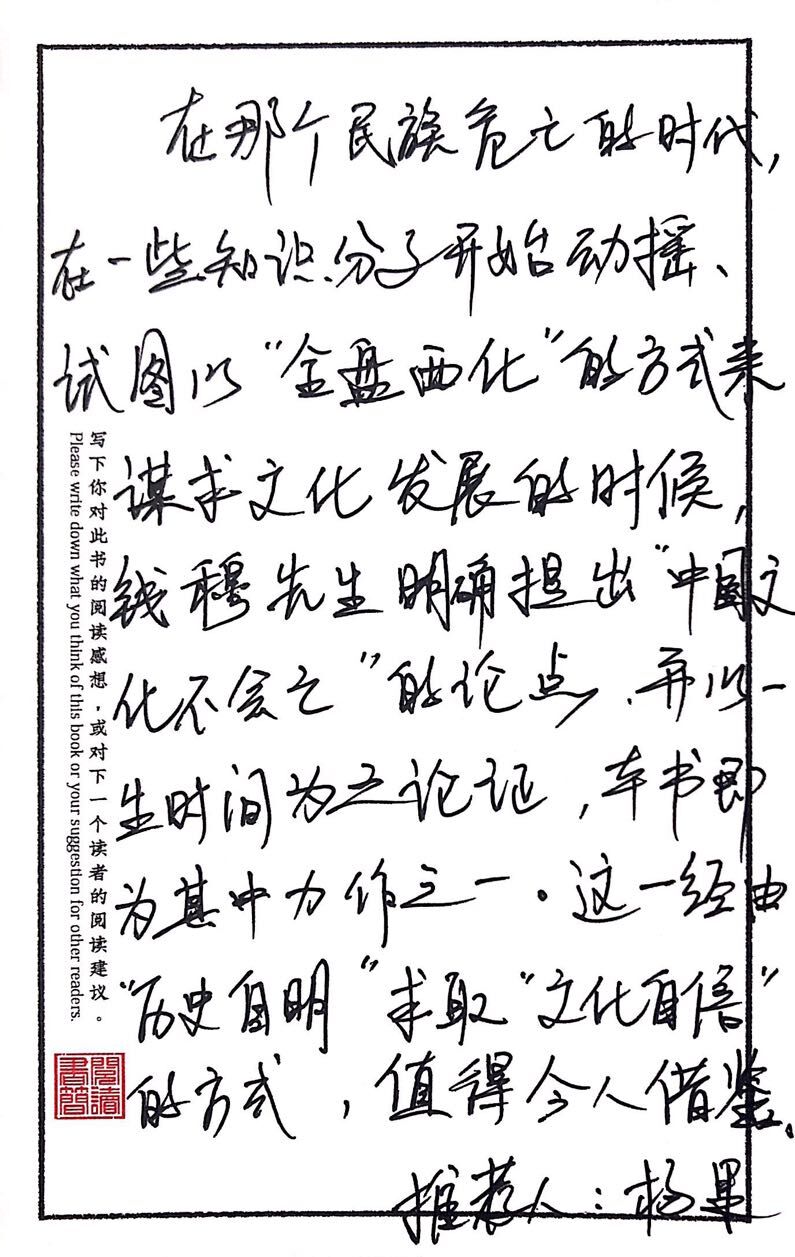 在那个民族危亡的时代，
在一些知识分子开始动摇、
试图以“全盘西化”的方式来
谋求文化发展的时候，
钱穆先生明确提出“中国文
化不会亡”的论点，并以一
生时间为之论证，本书即
为其中力作之一。这一经由
“历史自明”求取“文化自信”
的方式，值得今人借鉴。
推荐人：杨果
写下你对此书的阅读感想，或对下一个读者的阅读建议。
Please write down what you think of this book or your suggestion for other readers.
閱讀書簡